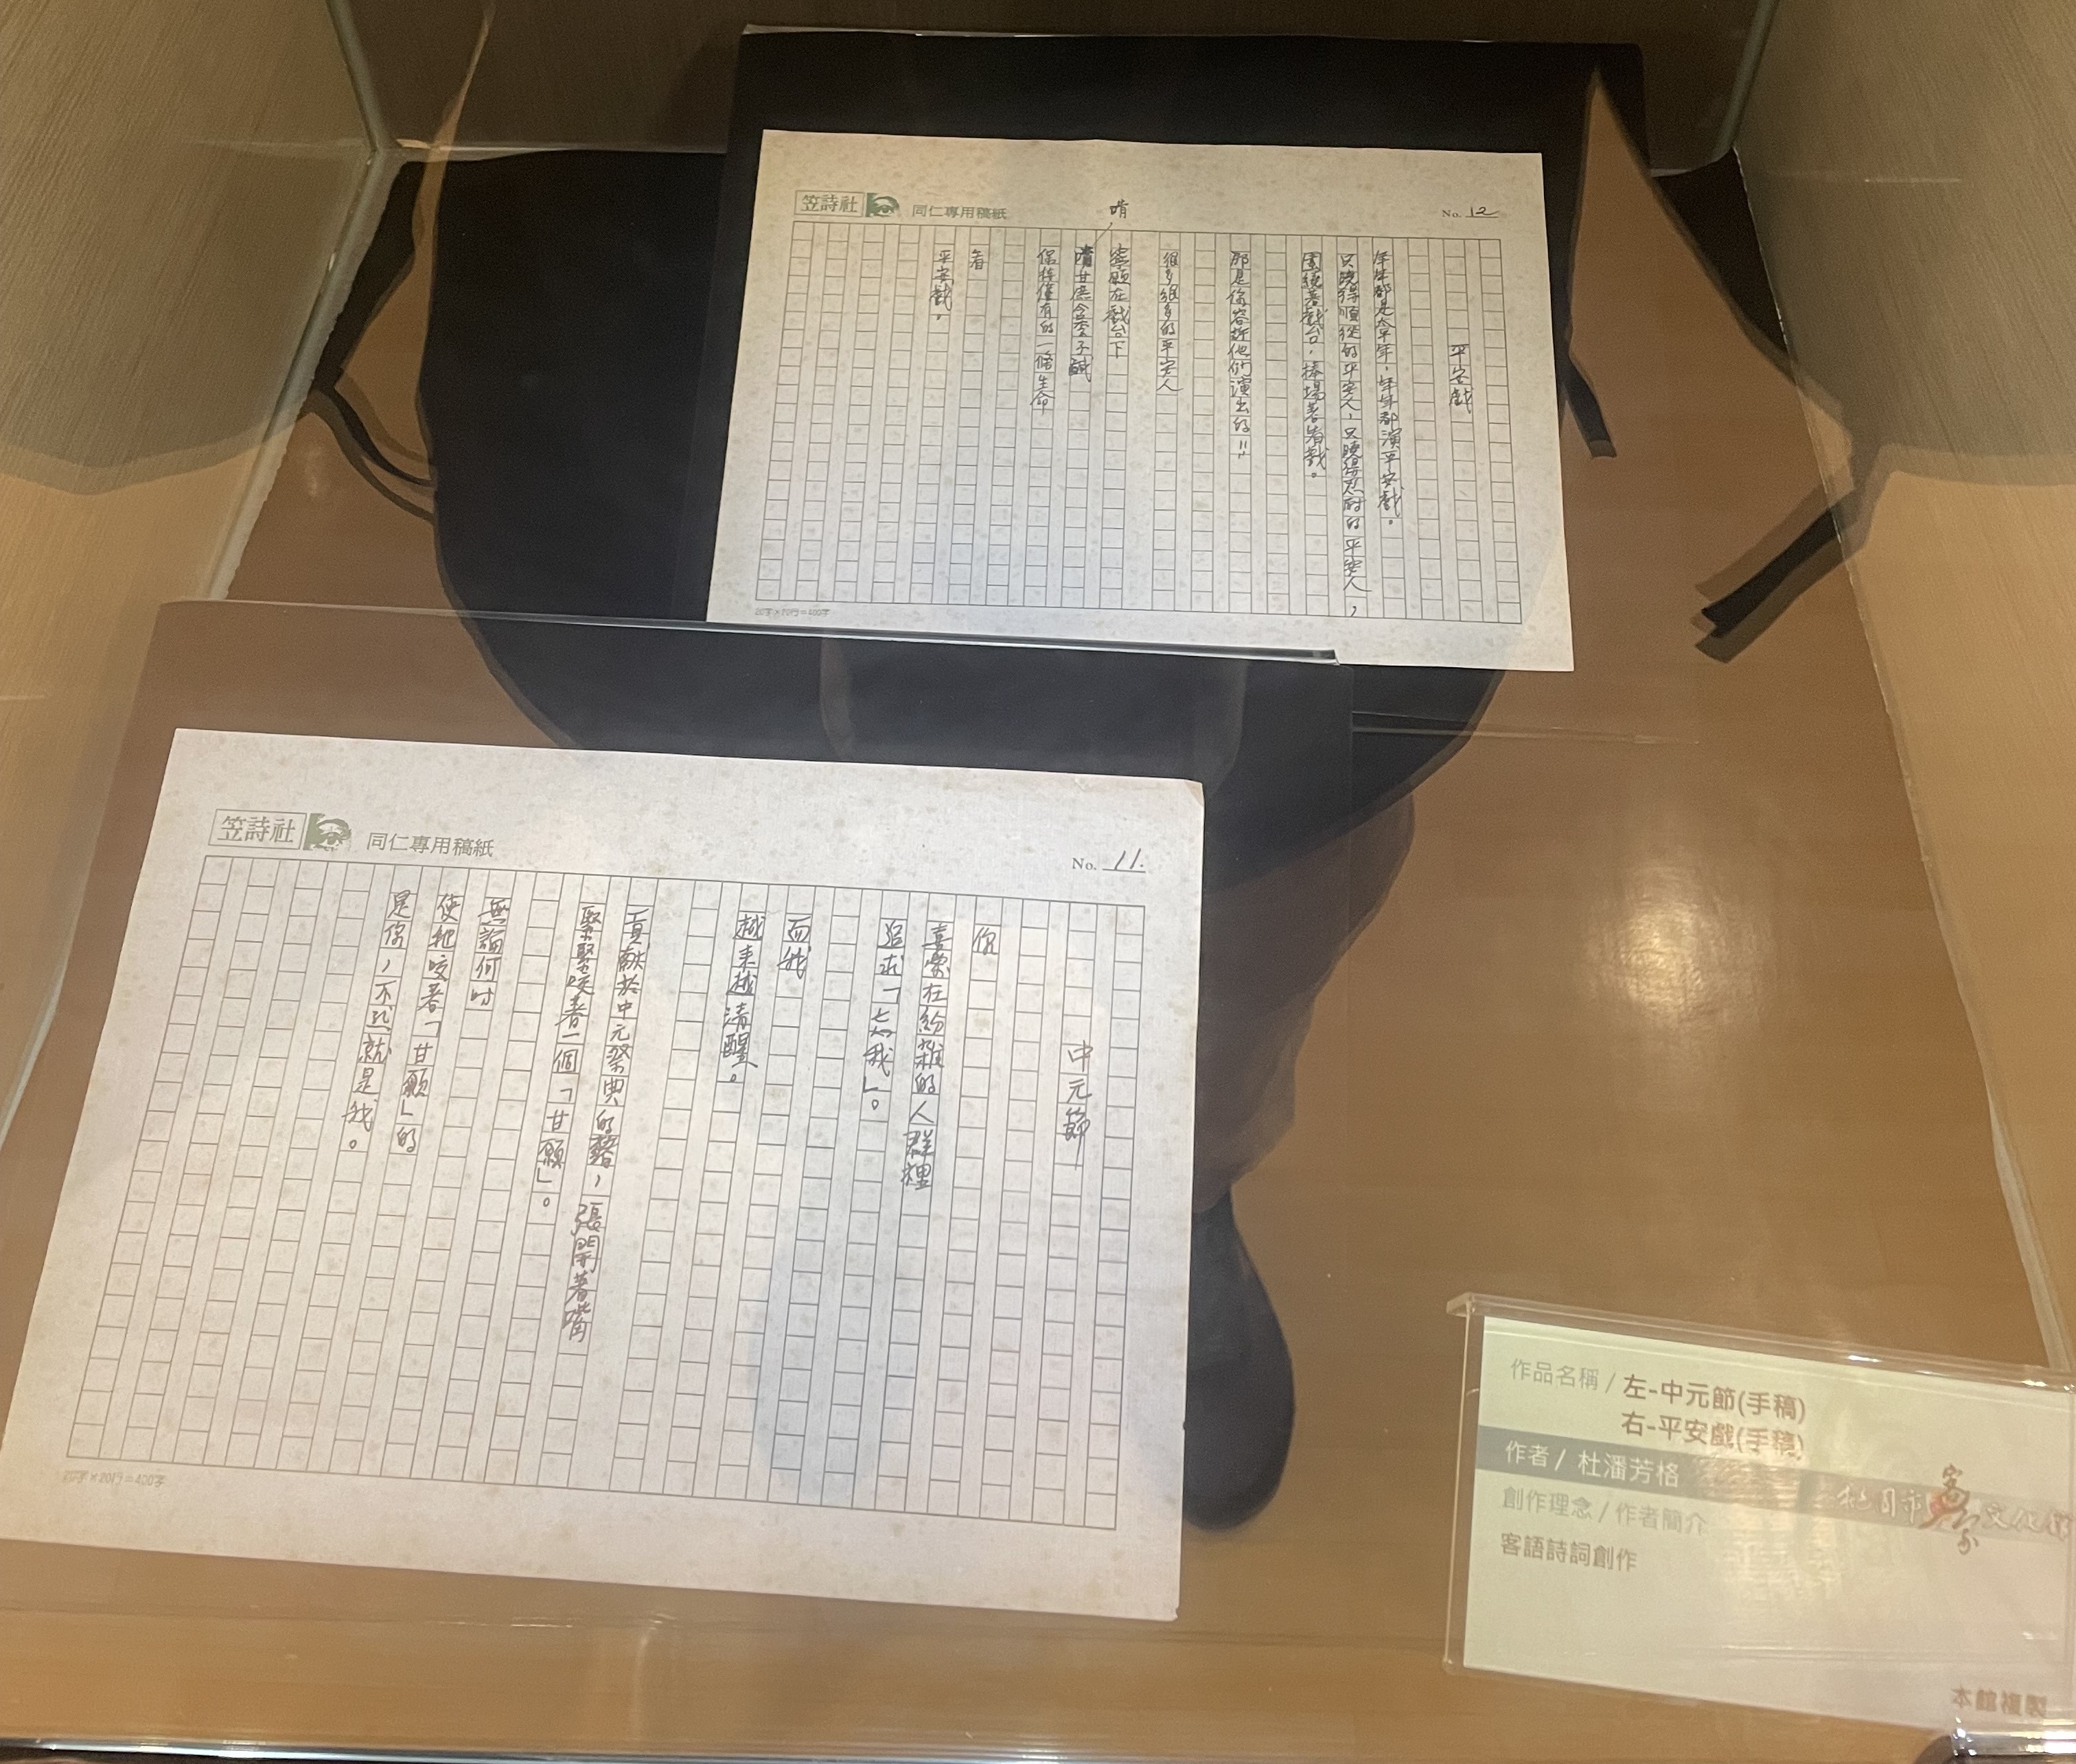 笠詩社 同仁專用稿紙
No. 12
平安戲
年年都是太平年，年年都演平安戲。
只曉得順從的平安人，只曉得忍耐的平安人，
圍繞著戲台，捧場著看戲。
那是你容許他們演出的＝
很多很多的平安人
寧願在戲台下
啃
甘蔗含李子鹹
保持僅有的一條生命
看
平安戲。
20字×20行=400字
笠詩社 同仁專用稿紙
No. 11.
中元節
你
喜樂在紛雜的人群裡
追求「忘我」。
而我
越來越清醒。
貢獻於中元祭典的豬，張開著嘴
緊緊咬著一個「甘願」。
無論何時
使牠咬著「甘願」的
是你，不然就是我。
20字×20行=400字
作品名稱 / 左-中元節(手稿)
右-平安戲(手稿)
作者 / 杜潘芳格
創作理念 / 作者簡介
客語詩詞創作
桃園市客家文化館
本館複製